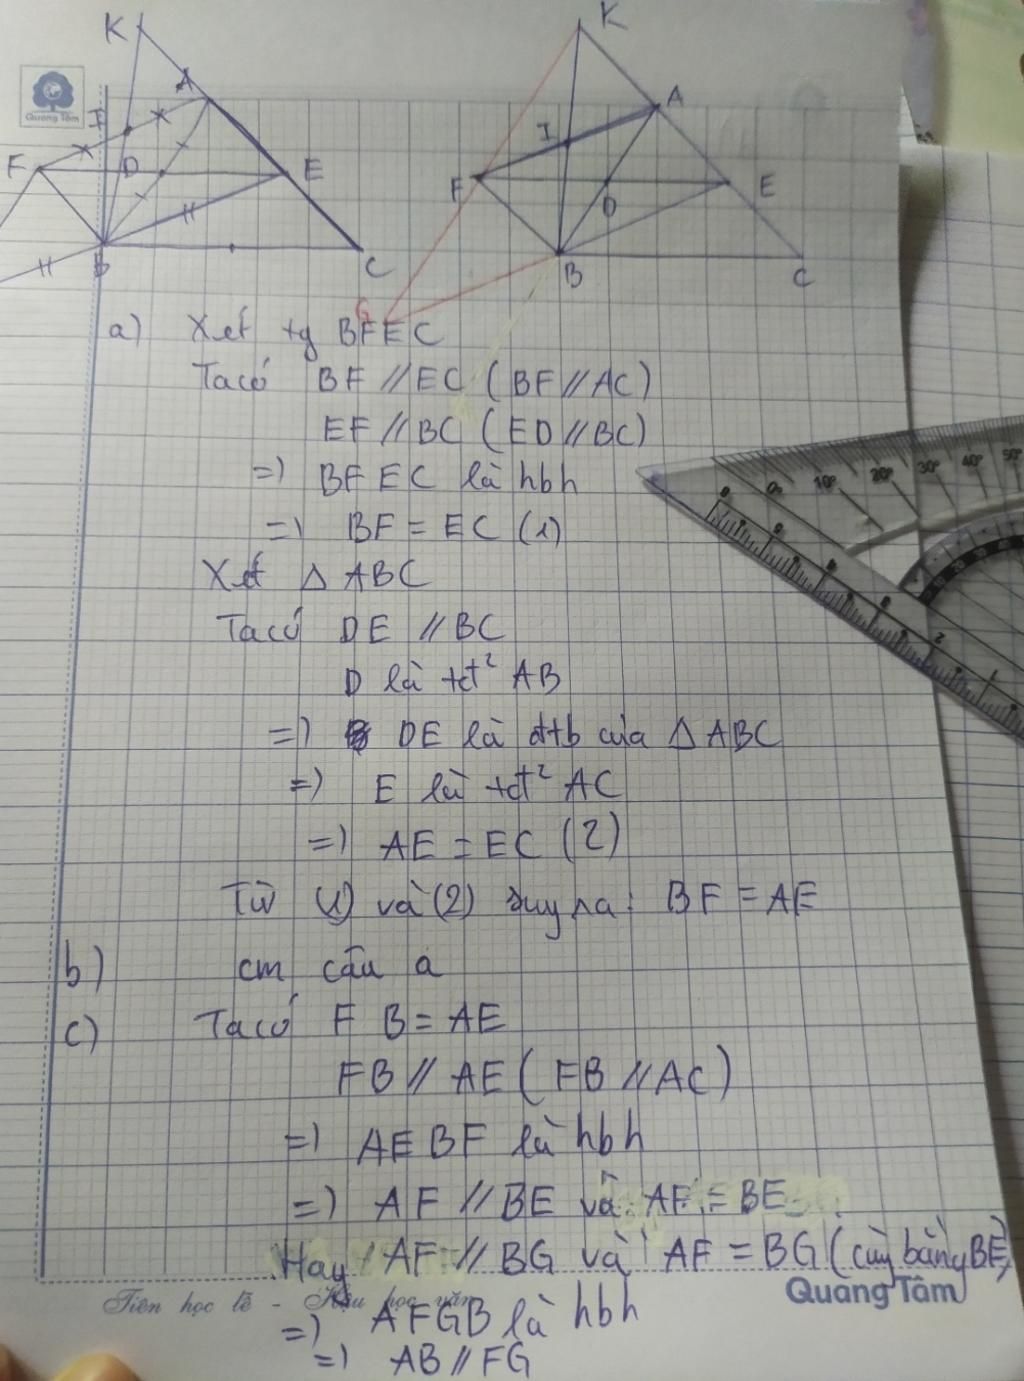 K
A
I
F
D
E
B
C
K
A
I
F
D
E
B
C
G
Quang Tâm
a) Xét tg BFEC
Ta có BF // EC (BF // AC)
EF // BC (ED // BC)
=) BFEC là hbh
=) BF = EC (1)
Xét Δ ABC
Ta có DE // BC
D là tđ² AB
=) DE là đtb của Δ ABC
=) E là tđ² AC
=) AE = EC (2)
Từ (1) và (2) suy ra: BF = AE
b) cm câu a
c) Ta có FB = AE
FB // AE (FB // AC)
=) AEBF là hbh
=) AF // BE và AF = BE
Hay AF // BG và AF = BG (cùng bằng BE)
Tiên học lễ - Hậu học văn
Quang Tâm
=) AFGB là hbh
=) AB // FG
0 10° 20° 30° 40° 50°